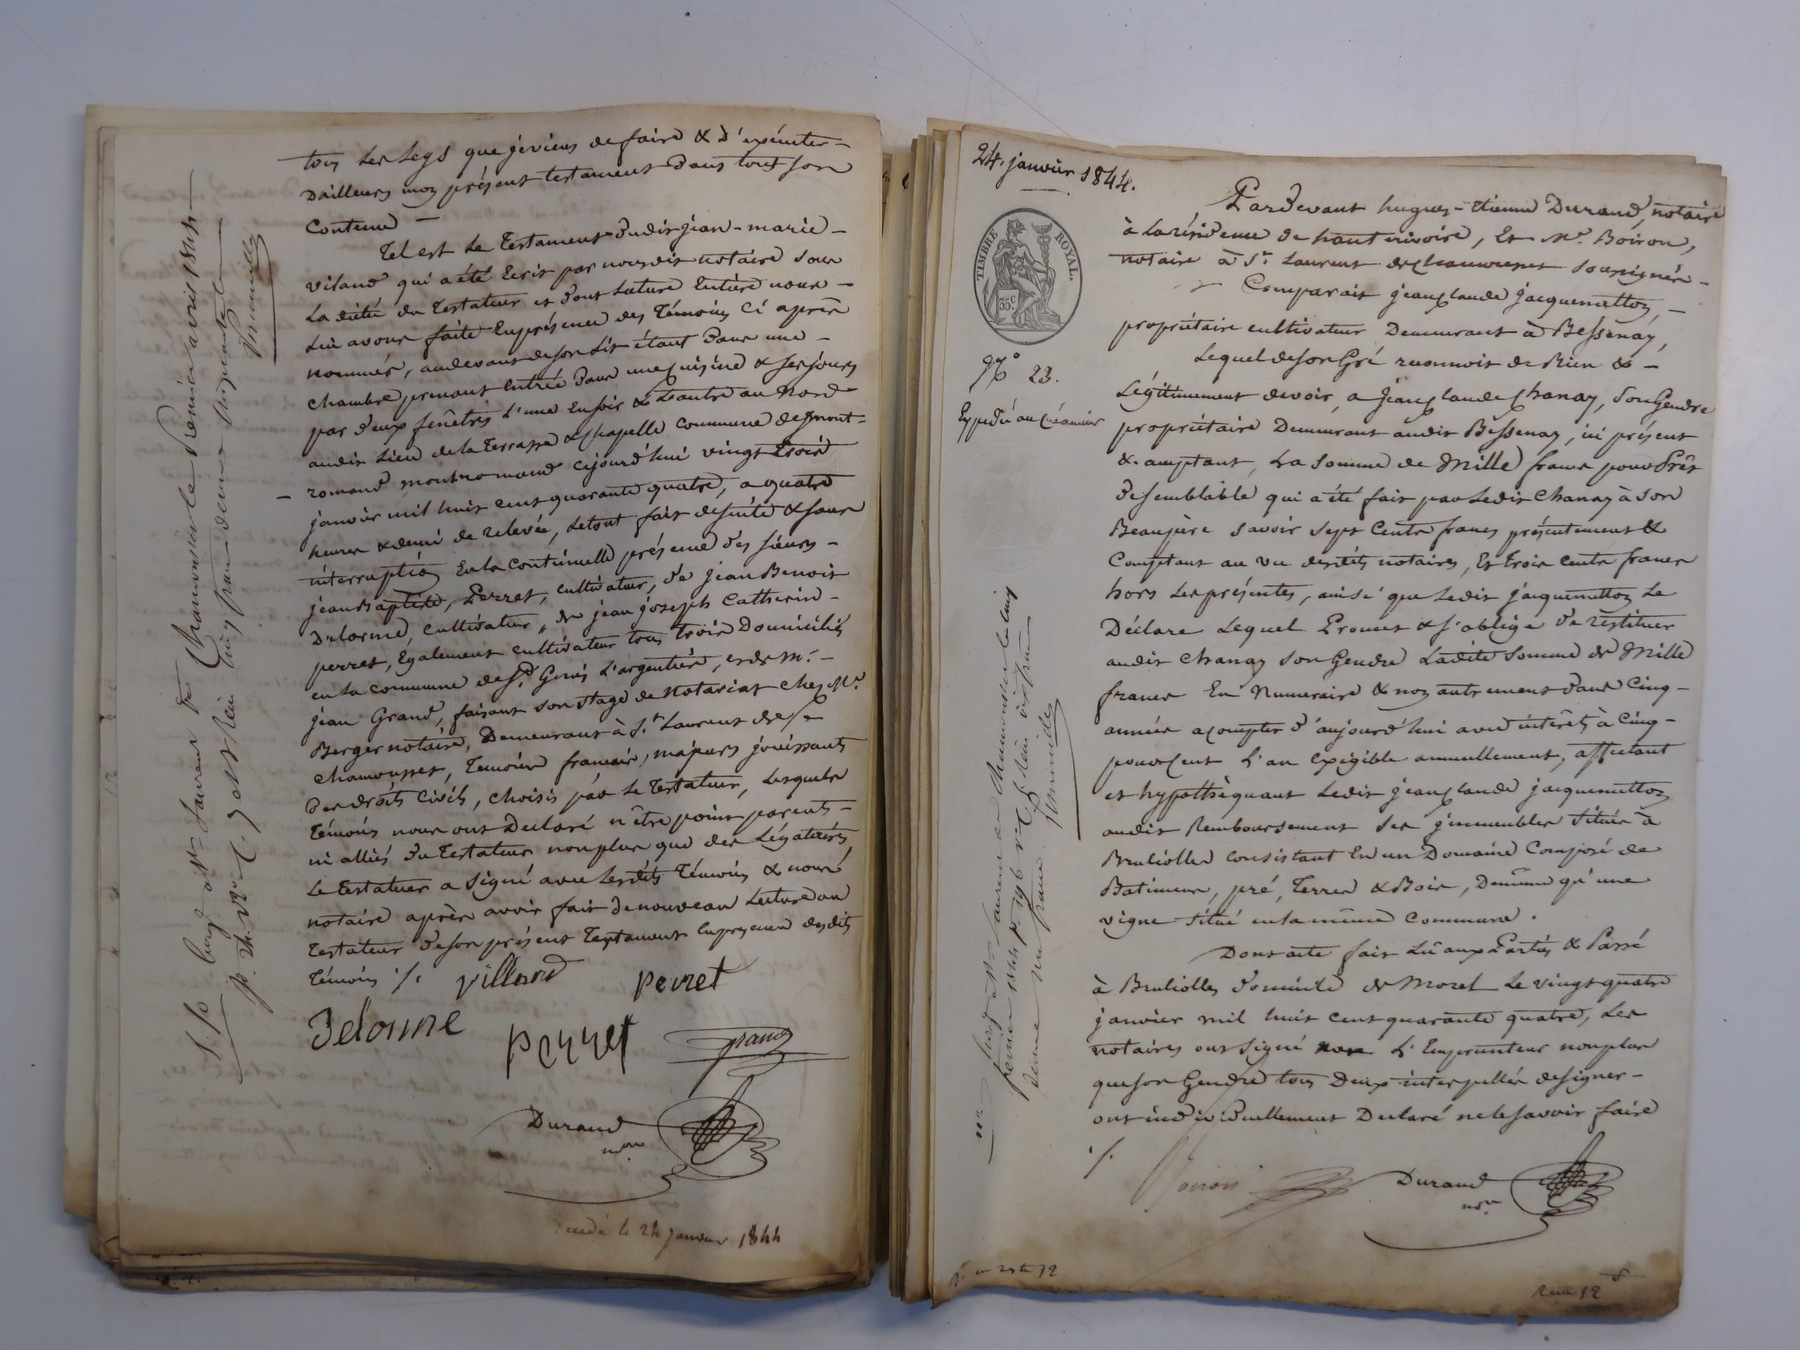 tous les legs que je viens de faire & d'exécuter –
d'ailleurs mon présent testament dans tout son
contenu –
Tel est le Testament dudit jean-marie –
vilard qui a été Ecrit par nous dit notaire sous
la dictée du Testateur et dont lecture Entière nous –
lui avons faite En présence des Témoins ci après
nommés, au devant de son lit étant dans une –
chambre prenant entrée dans une cuisine & ses jours
par deux fenêtres l'une En soir & l'autre au Nord
audit lieu de la Terrasse & chapelle commune de mont-
– romand, montromand cejourd'hui vingt trois
janvier mil huit cent quarante quatre, a quatre
heures & demi de relevée, le tout fait de suite & sans
interruption En la continuelle présence des sieurs –
jean Baptiste Perret, cultivateur, de jean Benoit
Delorme, cultivateur, de jean joseph Catherin –
perret, Egalement cultivateur tous trois Domiciliés
en la commune de St Genis L'argentière, et de Mr –
jean Grand, faisant son stage de Notariat chez Mr
Berger notaire, Demeurant à St Laurent de
chamousset, Temoins français, majeurs jouissants
des droits civils, choisis par le Testateur, Lesquels
Témoins nous ont Declaré n'être point parents –
ni alliés du Testateur non plus que des Légataires,
Le testateur a signé avec lesdits Témoins & nous
notaire après avoir fait de nouveau lecture au
Testateur de son présent Testament En présence desdits
Témoins ./. villard perret
Delorme perret Grand
Durand
nre
24 janvier 1844
24. janvier 1844.
TIMBRE ROYAL.
35c
No 23.
Expédié au créancier
Pardevant hugues-Etienne Durand, notaire
à la résidence de haut rivoire, Et Mr. Boiron,
notaire à St Laurent de Chamousset soussignés –
Comparait jean claude jacquemetton, –
propriétaire cultivateur Demeurant à Bessenay,
Lequel de son Gré reconnoit de Bien & –
Légitimement devoir, a jean claude Chanay, son Gendre
propriétaire Demeurant audit Bessenay, ici présent
& acceptant, La somme de Mille francs pour Prêt
de semblable qui a été fait par Ledit Chanay à son
Beaupère savoir sept Cents francs présentement &
Comptant au vu desdits notaires, Et trois Cents francs
hors les présentes, ainsi que Ledit jacquemetton Le
Déclare Lequel Promet & s'oblige de restituer
audit Chanay son Gendre Ladite somme de Mille
francs En Numeraire & non autrement dans Cinq –
années a compter d'aujourd'hui avec intérêts à Cinq –
pour Cent L'an Exigible annuellement, affectant
et hypothèquant Ledit jean claude jacquemetton
audit Remboursement ses immeubles situés à
Brulioles consistant En un Domaine Composé de
Batimens, pré, Terres & Bois, De même qu'une
vigne située en la même Commune.
Dont acte fait Lû aux Parties & Passé
à Brulioles domicile de Morel Le vingt quatre
janvier mil huit cent quarante quatre, Les
notaires ont signé L'Emprunteur non plus
que son Gendre tous Deux interpellés de signer –
ont individuellement Declaré ne le savoir faire
./.
Boiron Durand
nre